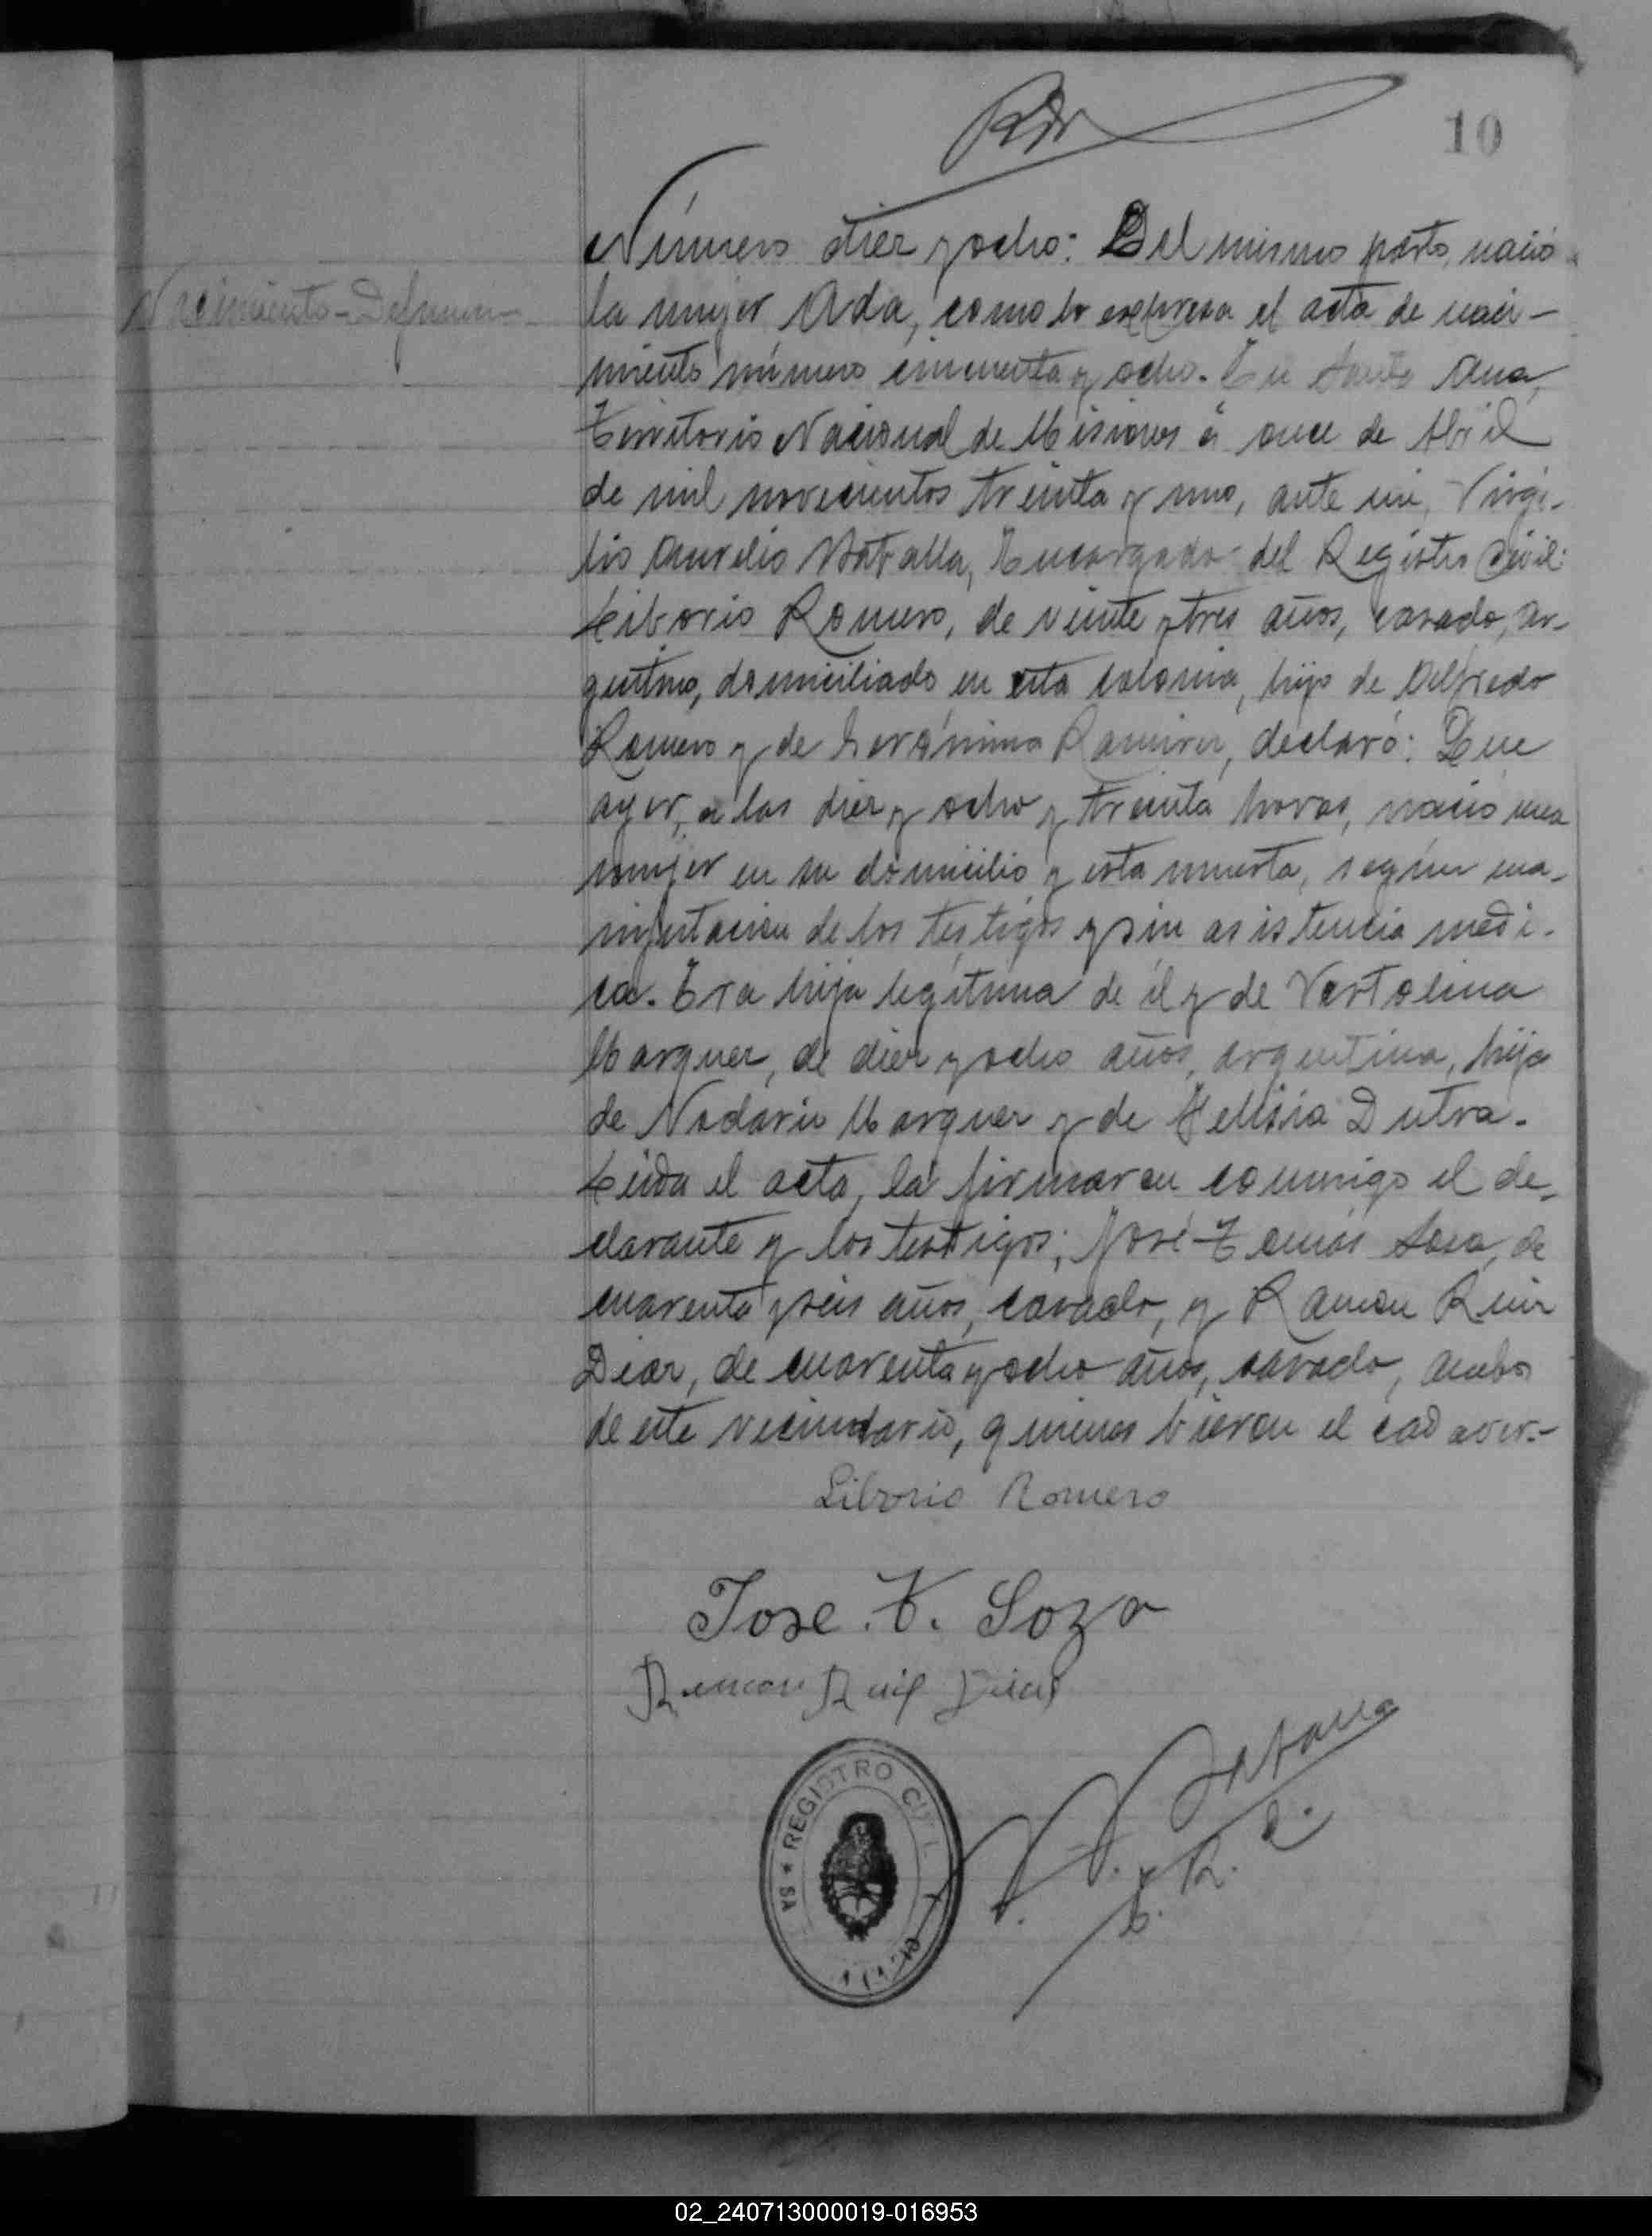 10
Nacimiento-Defunción
Número diez y ocho: Del mismo parto, nació
la mujer Ada, como lo expresa el acta de naci-
miento número cincuenta y ocho. En Santa Ana,
Territorio Nacional de Misiones á once de Abril
de mil novecientos treinta y uno, ante mí, Virgi-
lio Aurelio Encargado del Registro Civil:
Liborio Romero, de veinte y tres años, casado, ar-
gentino, domiciliado en esta colonia, hijo de Alfredo
Romero y de Gerónima Ramirez, declaró: Que
ayer, a las diez y ocho y treinta horas, nació una
mujer en su domicilio y esta muerta, según ma-
nifestacion de los testigos y sin asistencia medi-
ca. Era hija legítima de él y de Vertolina
Marquez, de diez y ocho años, argentina, hija
de Marquez y de Dutra.
Leida el acta, la firmaron conmigo el de-
clarante y los testigos; José Tomás Sosa, de
cuarenta y seis años, casado, y Ramon Ruiz
Diaz, de cuarenta y ocho años, casado, ambos
de este vecindario, quienes vieron el cadaver.-
Liborio Romero
Jose. T. Soza
Ramon Ruiz Diaz
REGISTRO CIVIL
E. R. C.
02_240713000019-016953